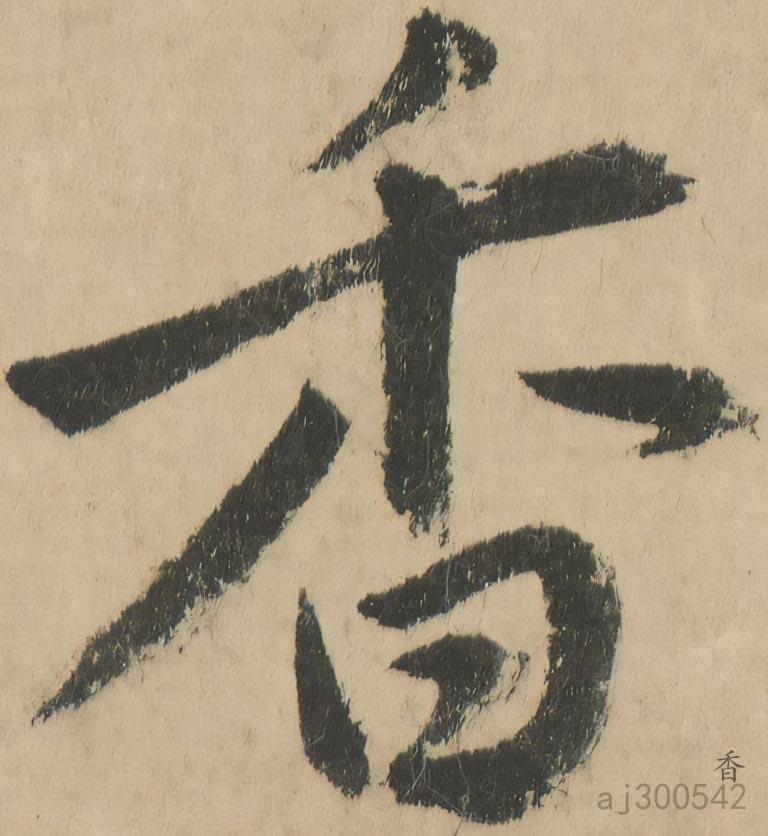 香
香
aj300542